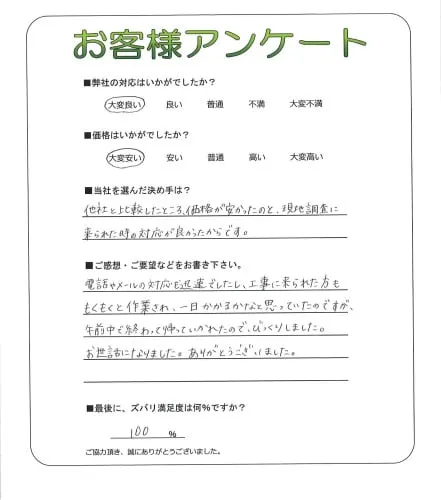 お客様アンケート
■弊社の対応はいかがでしたか？
大変良い 良い 普通 不満 大変不満
■価格はいかがでしたか？
大変安い 安い 普通 高い 大変高い
■当社を選んだ決め手は？
他社と比較したところ、価格が安かったのと、現地調査に
来られた時の対応が良かったからです。
■ご感想・ご要望などをお書き下さい。
電話やメールの対応も迅速でしたし、工事に来られた方も
もくもくと作業され、一日かかるかなと思っていたのですが、
午前中で終わって帰っていかれたので、びっくりしました。
お世話になりました。ありがとうございました。
■最後に、ズバリ満足度は何%ですか？
100 %
ご協力頂き、誠にありがとうございました。